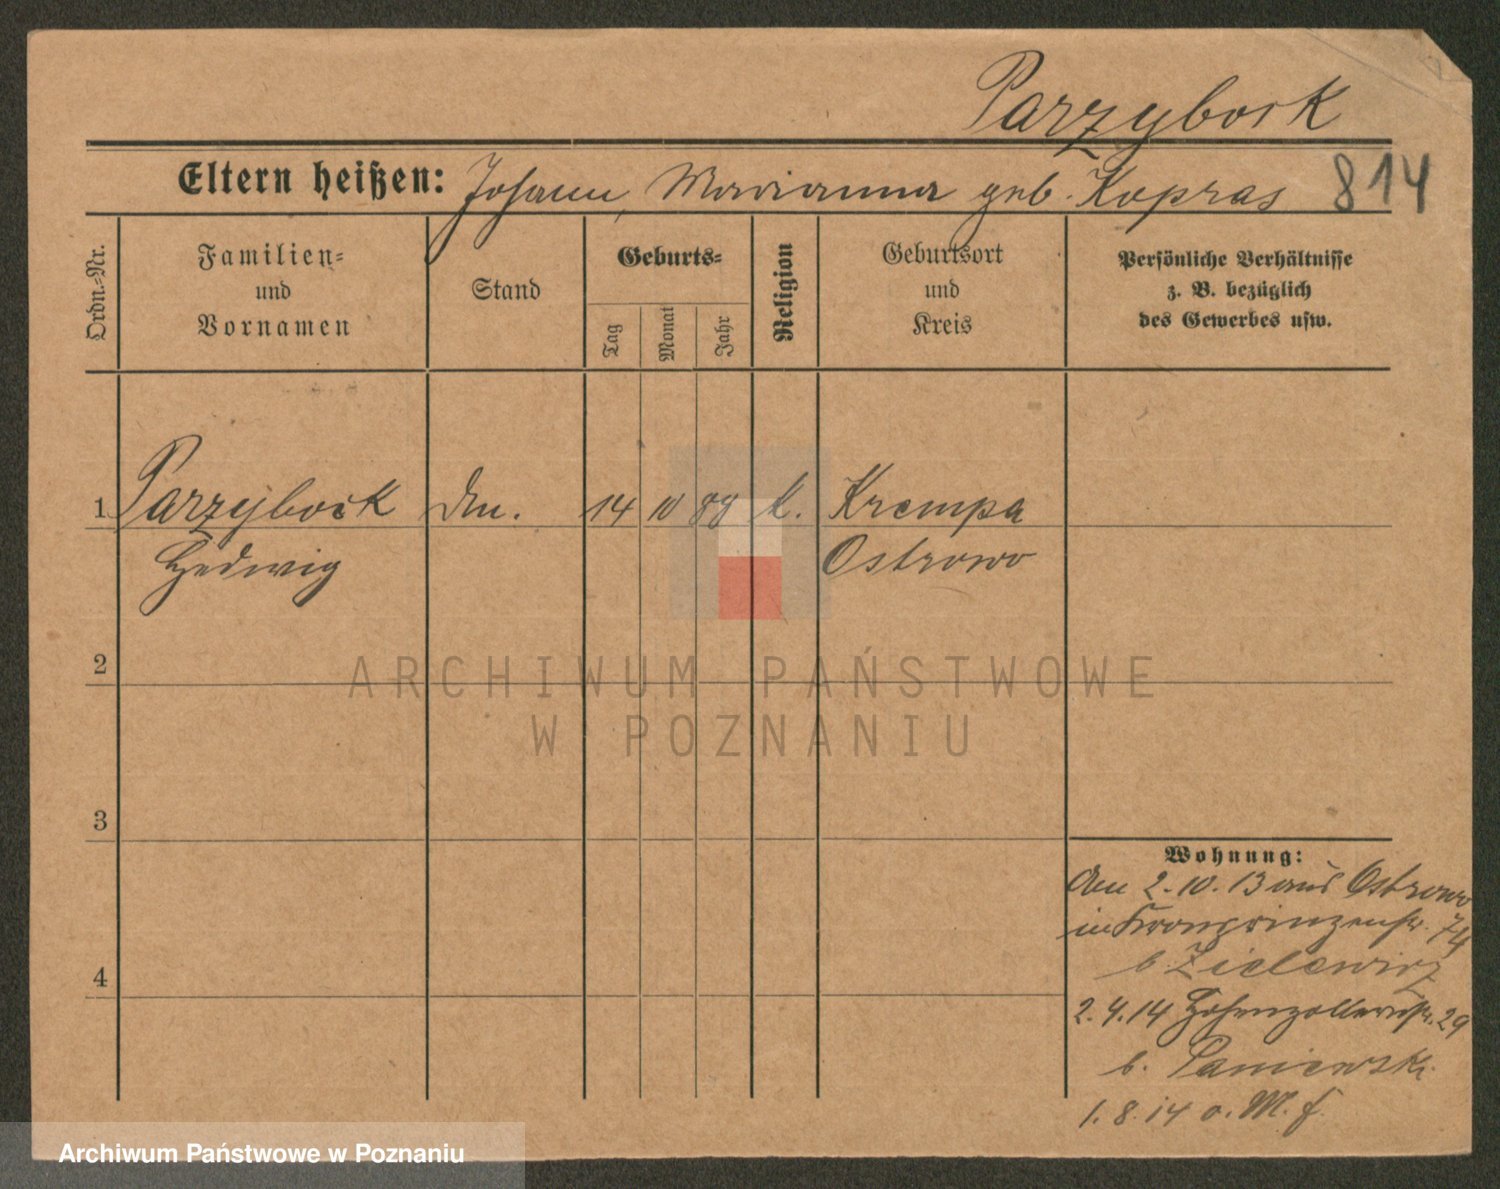 Parzybock
Eltern heißen: Johann, Marianna geb. Kopras 814
Ordn.-Nr.
Familien-
und
Vornamen
Stand
Geburts-
Tag
Monat
Jahr
Religion
Geburtsort
und
Kreis
Persönliche Verhältnisse
z. B. bezüglich
des Gewerbes usw.
1 Parzybock 14 10 88 k. Krempa
Hedwig Ostrowo
2
ARCHIWUM PAŃSTWOWE
W POZNANIU
3
Wohnung:
2.10.13 aus Ostrowo
in Kronprinzenstr. 74
b. Zielewicz
4
2.4.14 Hohenzollernstr. 29
b. Paniewski
1.8.14 o. M. f.
Archiwum Państwowe w Poznaniu